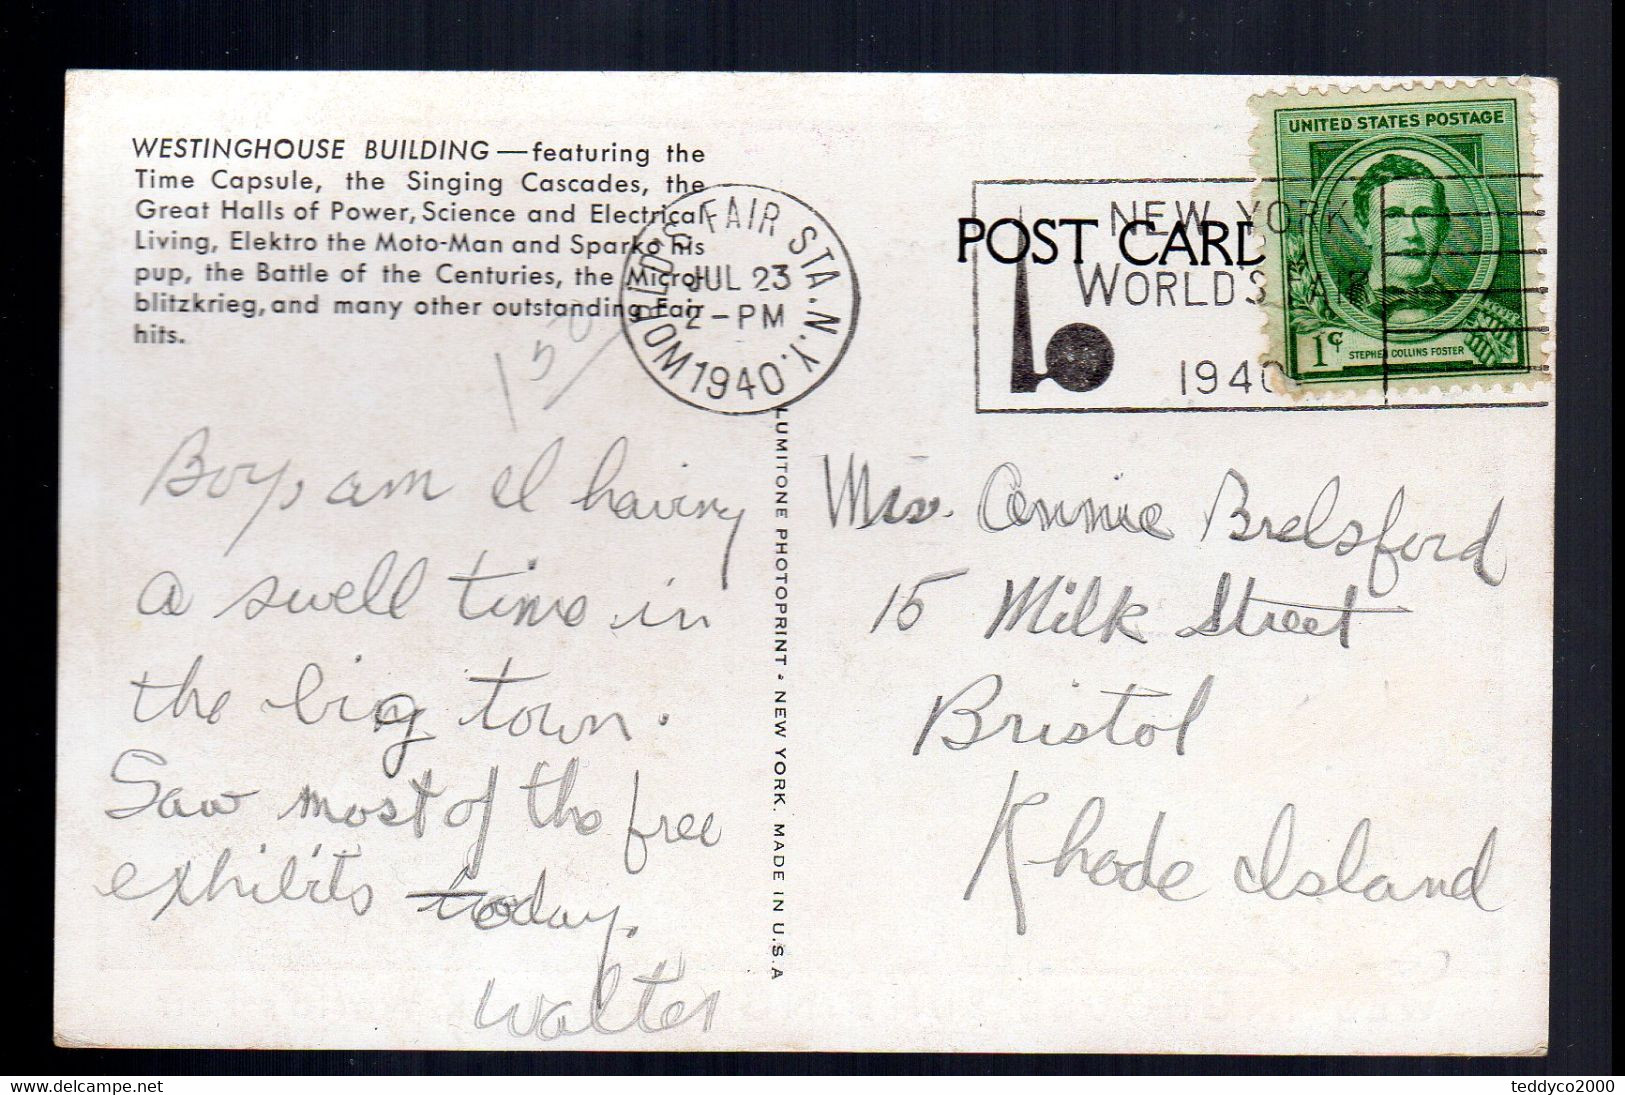 WESTINGHOUSE BUILDING — featuring the
Time Capsule, the Singing Cascades, the
Great Halls of Power, Science and Electrical
Living, Elektro the Moto-Man and Sparko his
pup, the Battle of the Centuries, the Micro-
blitzkrieg, and many other outstanding Fair
hits.
WORLD'S FAIR STA. N.Y.
JUL 23
2-PM
1940
POST CARD
NEW YORK
WORLD'S FAIR
1940
UNITED STATES POSTAGE
1¢
STEPHEN COLLINS FOSTER
Boy, am I having
a swell time in
the big town.
Saw most of the free
exhibits today.
Walter
LUMITONE PHOTOPRINT · NEW YORK. MADE IN U.S.A
Annie Brelsford
15 Milk Street
Bristol
Rhode Island
delcampe.net
teddyco2000